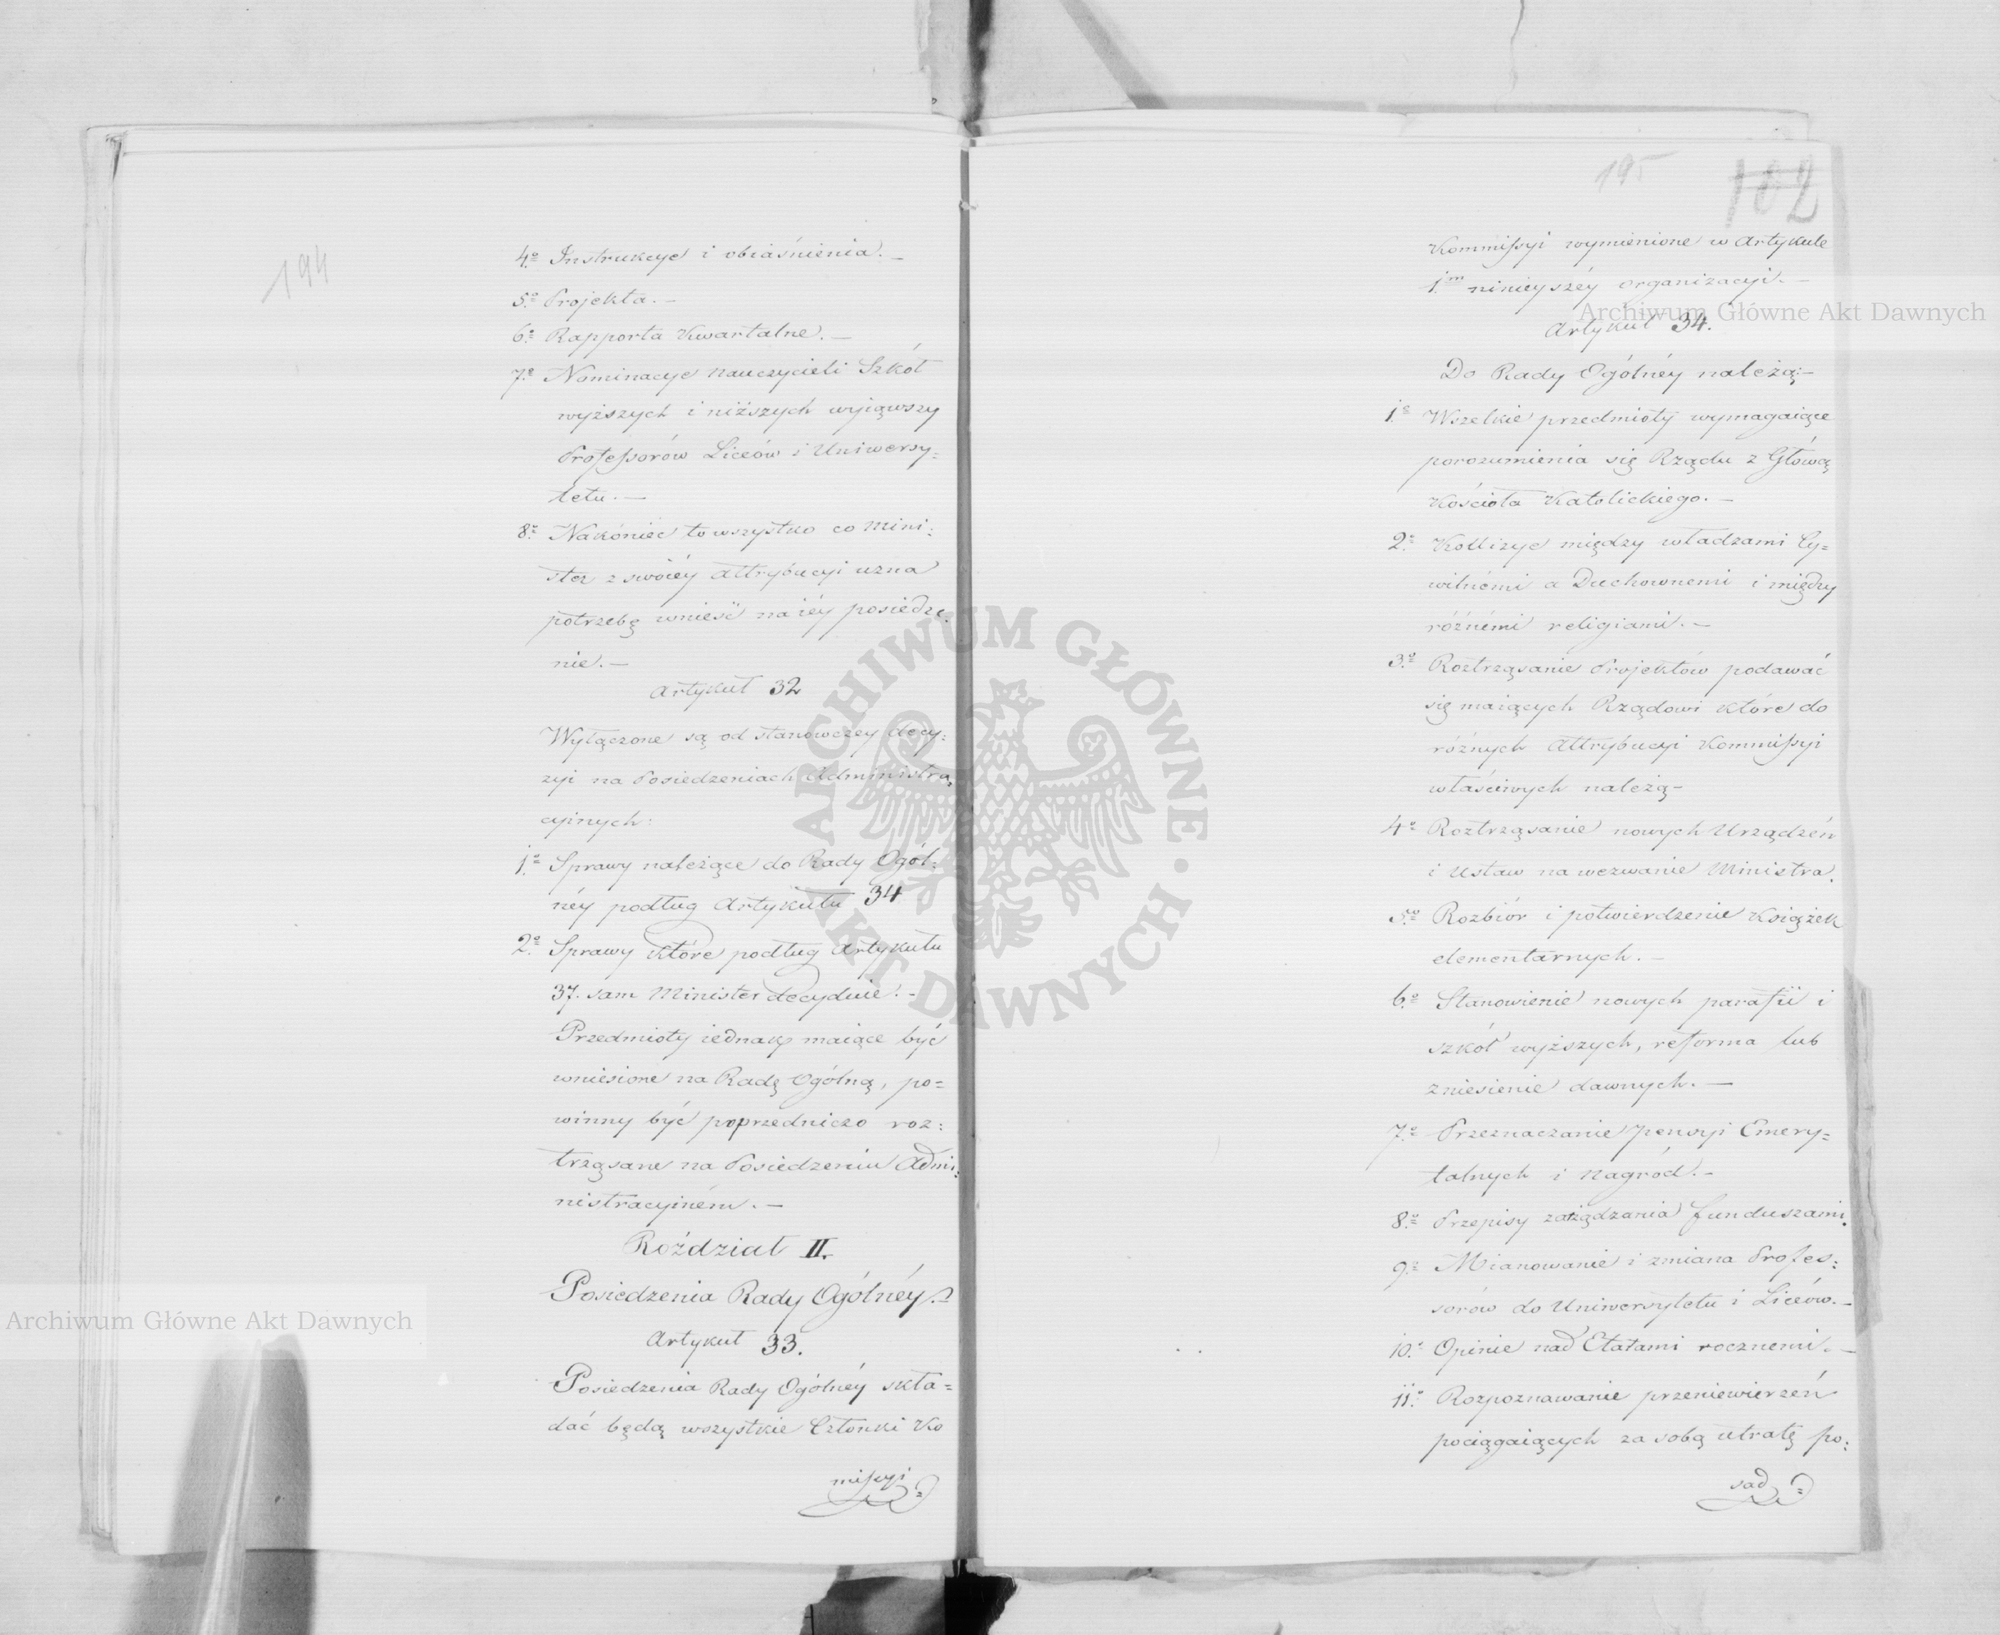 194
4.º Instrukcye i obiaśnienia. –
5.º Projekta. –
6.º Rapporta Kwartalne. –
7.º Nominacye Nauczycieli Szkół
wyższych i niższych wyiąwszy
Professorów Liceów i Uniwersy=
tetu. –
8.º Nakóniec to wszystko co Mini:
ster z swoiéy Attrybucyi uzna
potrzebę wnieść na iéy posiedze:
nie. –
Artykuł 32
Wyłączone są od stanowczey decy:
zyi na Posiedzeniach Administra
cyinych:
1.º Sprawy należące do Rady Ogól:
néy podług Artykułu 34
2.º Sprawy które podług Artykułu
37. sam Minister decyduie. –
Przedmioty iednak maiące być
wniesione na Radę Ogólną, po=
winny być poprzedniczo roz:
trząsane na Posiedzeniu Admi:
nistracyiném. –
Roździał II.
Posiedzenia Rady Ogólnéy. –
Artykuł 33.
Posiedzenia Rady Ogólnéy skła=
dać będą wszystkie Członki Ko
missyi
195
102
Kommissyi wymienione w Artykule
1.m ninieyszéy organizacyi. –
Artykuł 34.
Do Rady Ogólnéy należą: –
1.º Wszelkie przedmioty wymagaiące
porozumienia się Rządu z Głową
Kościoła Katolickiego. –
2.º Kollizye między władzami Cy=
wilnémi a Duchownemi i między
różnémi religiami. –
3.º Roztrząsanie Projektów podawać
się maiących Rządowi które do
różnych Attrybucyi Kommissyi
właściwych należą –
4.º Roztrząsanie nowych Urządzeń
i Ustaw na wezwanie Ministra.
5.º Rozbiór i potwierdzenie Książek
elementarnych. –
6.º Stanowienie nowych parafii i
szkół wyższych, reforma lub
zniesienie dawnych. –
7.º Przeznaczanie pensyi Emery=
talnych i Nagród. –
8.º Przepisy zarządzania funduszami.
9.º Mianowanie i zmiana Profes:
sorów do Uniwersytetu i Liceów. –
10.º Opinie nad Etatami rocznemi. –
11.º Rozpoznawanie przeniewierzeń
pociągaiących za sobą utratę po:
sad
Archiwum Główne Akt Dawnych
Archiwum Główne Akt Dawnych
ARCHIWUM GŁÓWNE AKT DAWNYCH